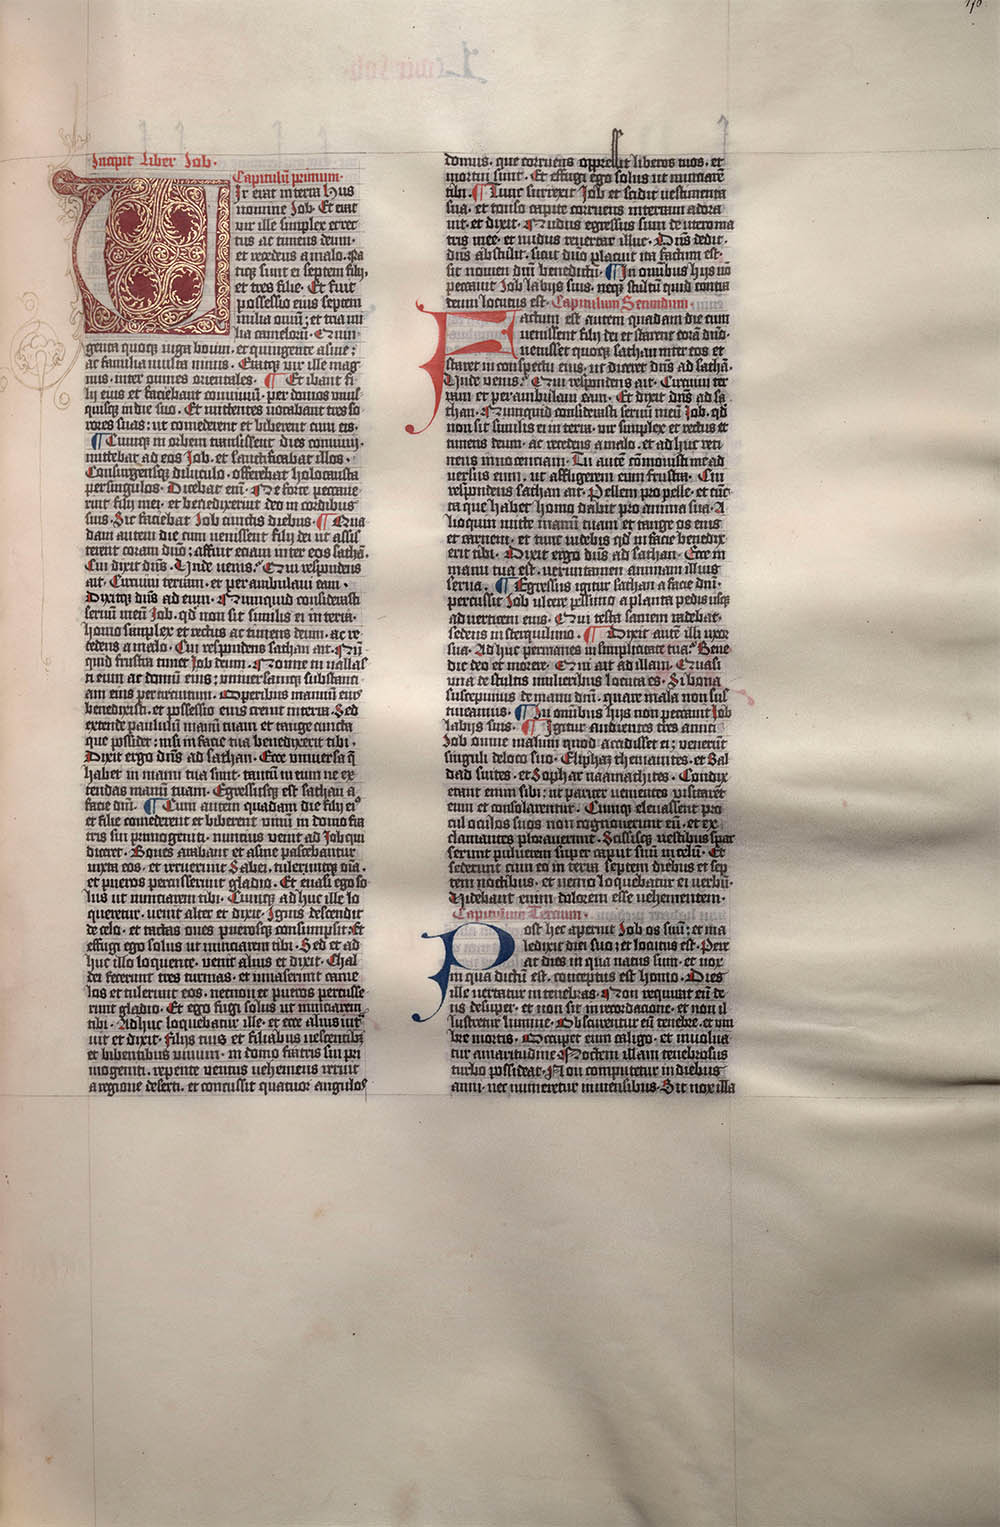 Incipit Liber Job.
Capitulū primum.
Ir erat in terra Hus
nomine Job. Et erat
vir ille simplex et rec
tus ac timens deum.
et recedens a malo. Na
tiq sunt ei septem filij.
et tres filie. Et fuit
possessio eius septem
milia ouiū; et tria mi
lia camelorū. Quin
genta quoq iuga boum. et quingente asine;
ac familia multa nimis. Eratq vir ille mag
nus. inter omnes orientales. Et ibant fi
lij eius et faciebant conuiuiū. per domos vnus
quisq in die suo. Et mittentes vocabant tres so
rores suas; ut comederent et biberent cum eis.
Cumq in orbem transissent dies conuiuij.
mittebat ad eos Job. et sanctificabat illos.
Consurgensq diluculo. offerebat holocausta
per singulos. Dicebat enī. Ne forte peccaue
rint filij mei. et benedixerint deo in cordibus
suis. Sic faciebat Job cunctis diebus. Qua
dam autem die cum venissent filij dei ut assis
terent coram dño; affuit eciam inter eos sathā.
Cui dixit dñs. Vnde venis. Qui respondens
ait. Circuiui terram. et perambulaui eam.
Dixitq dñs ad eum. Numquid considerasti
seruū meū Job. qd non sit similis ei in terra.
homo simplex et rectus ac timens deum. ac re
cedens a malo. Cui respondens sathan ait. Nū
quid frustra timet Job deum. Nonne tu vallas
ti eum ac domū eius; vniuersamq substanci
am eius per circuitum. Operibus manuum eiꝰ
benedixisti. et possessio eius creuit in terra. Sed
extende paululū manū tuam et tange cuncta
que possidet; nisi in facie tua benedixerit tibi.
Dixit ergo dñs ad sathan. Ecce vniuersa q̄
habet in manu tua sunt. tantū in eum ne ex
tendas manū tuam. Egressusq est sathan a
facie dnī. Cum autem quadam die filij eiꝰ
et filie comederent et biberent vinū in domo fra
tris sui primogeniti. nuncius venit ad Job qui
diceret. Boues arabant et asine pascebantur
iuxta eos. et irruerunt Sabei. tuleruntq oīa.
et pueros percusserunt gladio. Et euasi ego so
lus ut nunciarem tibi. Cumq adhuc ille lo
queretur. venit alter et dixit. Ignis descendit
de celo. et tactas oues puerosq consumpsit. Et
effugi ego solus ut nunciarem tibi. Sed et ad
huc illo loquente. venit alius et dixit. Chal
dei fecerunt tres turmas. et inuaserunt came
los et tulerunt eos. necnon et pueros percusse
runt gladio. Et ego fugi solus ut nunciarem
tibi. Adhuc loquebatur ille. et ecce alius int
uit et dixit. Filijs tuis et filiabus vescentibꝫ
et bibentibus vinum. in domo fratris sui pri
mogeniti. repente ventus vehemens irruit
a regione deserti. et concussit quatuor angulos
domus. que corruens oppressit liberos tuos. et
mortui sunt. Et effugi ego solus ut nunciarē
tibi. Tunc surrexit Job et scidit vestimenta
sua. et tonso capite corruens in terram adora
uit. et dixit. Nudus egressus sum de utero ma
tris mee. et nudus reuertar illuc. Dñs dedit.
dñs abstulit. sicut dño placuit ita factum est.
sit nomen dnī benedictū. In omnibus hijs nō
peccauit Job labijs suis. neq stultū quid contra
deum locutus est. Capitulum Secundum.
Factum est autem quadam die cum
venissent filij dei et starent corā dño.
venisset quoq sathan inter eos et
staret in conspectu eius. ut diceret dñs ad sathā.
Vnde venis. Qui respondens ait. Circuiui ter
ram et perambulaui eam. Et dixit dñs ad sa
than. Numquid considerasti seruū meū Job. qd
non sit similis ei in terra. vir simplex et rectus et
timens deum. ac recedens a malo. et adhuc reti
nens innocenciam. Tu autē cōmouisti me ad
uersus eum. ut affligerem eum frustra. Cui
respondens sathan ait. Pellem pro pelle. et cūc
ta que habet homo dabit pro anima sua. A
lioquin mitte manū tuam et tange os eius
et carnem. et tunc videbis qd in facie benedix
erit tibi. Dixit ergo dñs ad sathan. Ecce in
manu tua est. verumtamen animam illius
serua. Egressus igitur sathan a facie dnī.
percussit Job vlcere pessimo a planta pedis usq
ad verticem eius. Qui testa saniem radebat.
sedens in sterquilinio. Dixit autē illi vxor
sua. Adhuc permanes in simplicitate tua. Bene
dic deo et morere. Qui ait ad illam. Quasi
vna de stultis mulieribus locuta es. Si bona
suscepimus de manu dnī. quare mala non sus
tineamus. In omnibus hijs non peccauit Job
labijs suis. Igitur audientes tres amici
Job omne malum quod accidisset ei; venerūt
singuli de loco suo. Eliphaz themanites. et Bal
dad suites. et Sophar naamathites. Condix
erant enim sibi; ut pariter venientes visitarēt
eum et consolarentur. Cumq eleuassent pro
cul oculos suos non cognouerunt eū. et ex
clamantes plorauerunt. Scissisq vestibus spar
serunt puluerem super caput suū in celū. Et
sederunt cum eo in terra septem diebus et sep
tem noctibus. et nemo loquebatur ei verbū.
Videbant enim dolorem esse vehementem.
Capitulum Tercium.
Post hec aperuit Job os suū; et ma
ledixit diei suo; et locutus est. Pere
at dies in qua natus sum. et nox
in qua dictū est. conceptus est homo. Dies
ille vertatur in tenebras. Non requirat eū de
us desuper. et non sit in recordacione. et non il
lustretur lumine. Obscurentur eū tenebre. et vm
bre mortis. Occupet eum caligo. et inuolua
tur amaritudine. Noctem illam tenebrosus
turbo possideat. Non computetur in diebus
anni. nec numeretur in mensibus. Sit nox illa